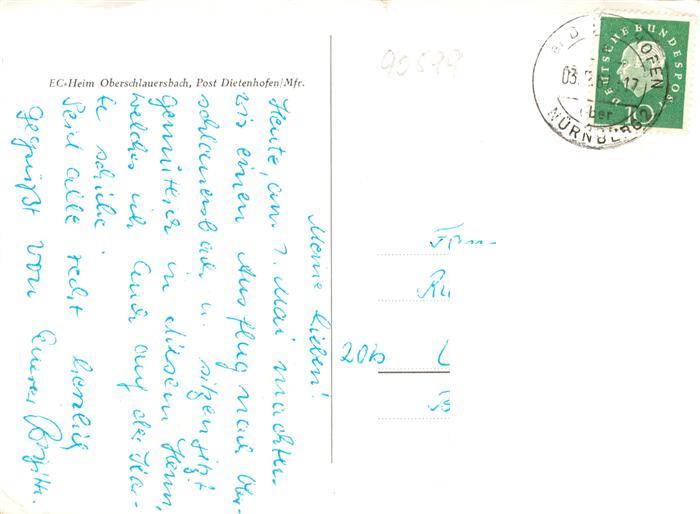 EC-Heim Oberschlauersbach, Post Dietenhofen/Mfr.
Meine Lieben!
Heute, am 7. Mai machten
wir einen Ausflug nach Ober-
schlauersbach u. sitzen jetzt
gemütlich in diesem Heim,
welches ich Euch auf der Kar-
te schicke.
Seid alle recht herzlich
gegrüßt von Eurer Brigitte.
90579
DEUTSCHE BUNDESPOST
10
HOFEN
über
NÜRNBERG 2
Fam
Ru
20b L